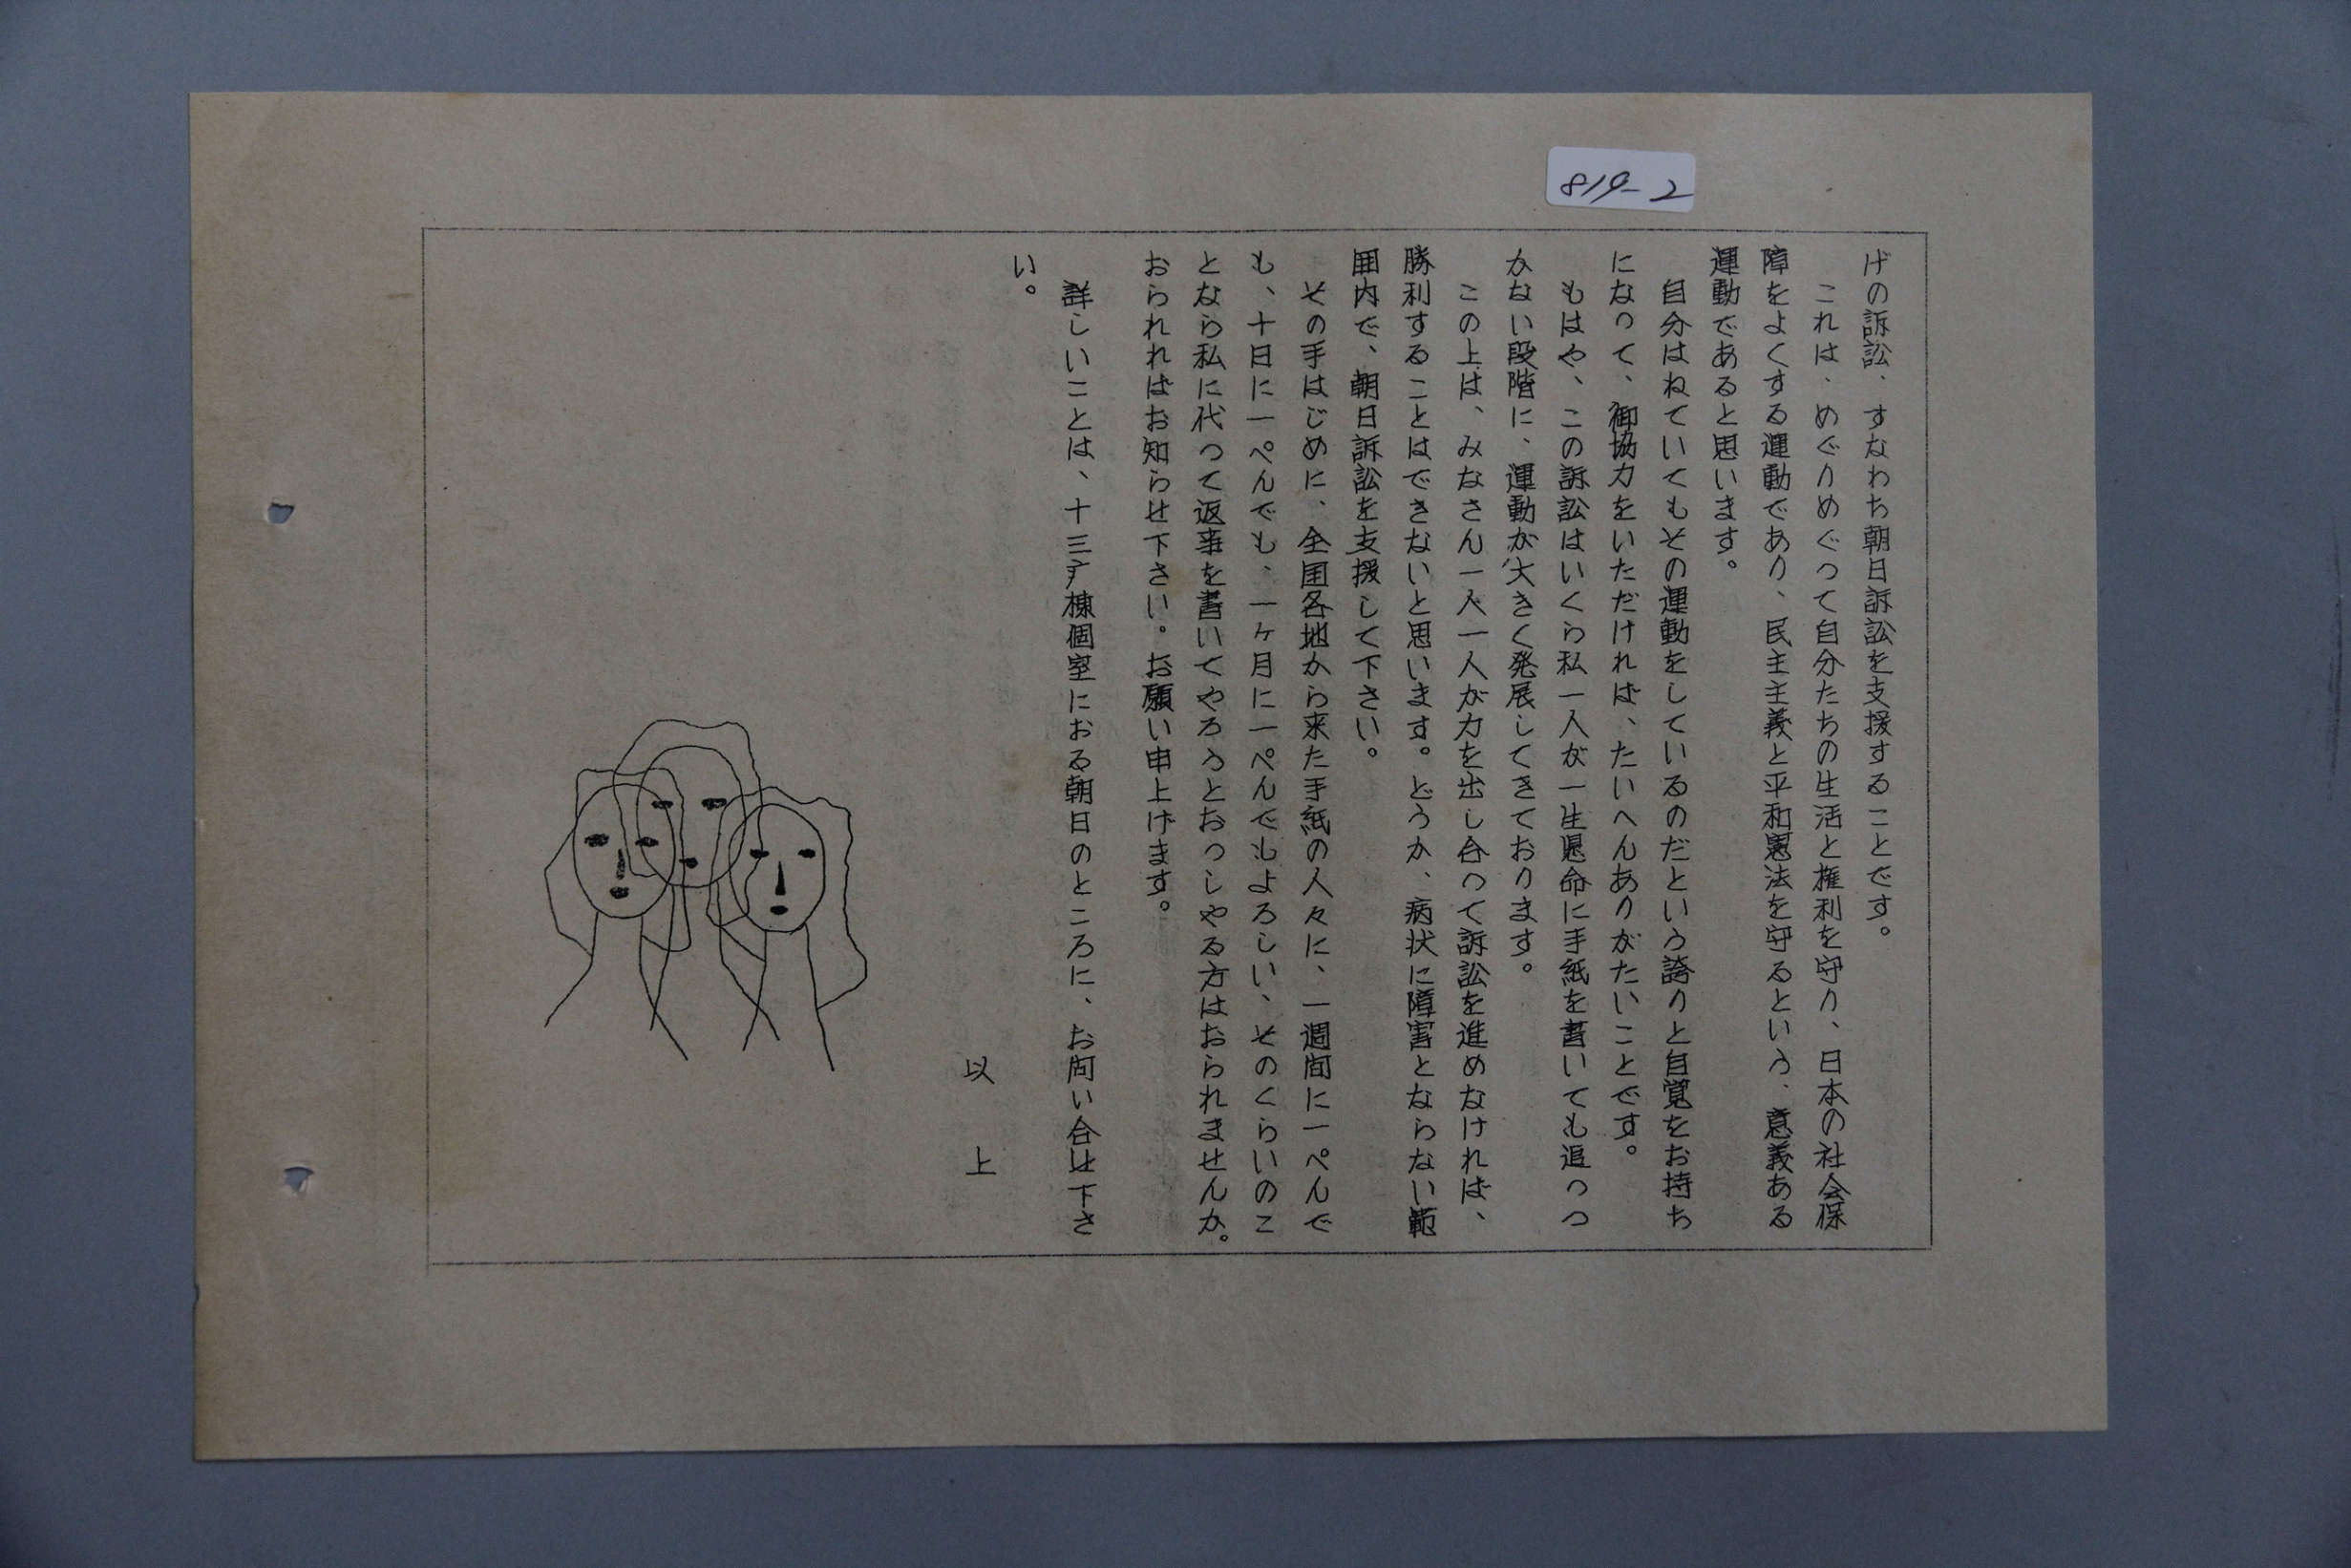 819-2
げの訴訟、すなわち朝日訴訟を支援することです。
これは、めぐりめぐって自分たちの生活と権利を守り、日本の社会保
障をよくする運動であり、民主主義と平和憲法を守るという、意義ある
運動であると思います。
自分はねていてもその運動をしているのだという誇りと自覚をお持ち
になって、御協力をいただければ、たいへんありがたいことです。
もはや、この訴訟はいくら私一人が一生懸命に手紙を書いても追っつ
かない段階に、運動が大きく発展してきております。
この上は、みなさん一人一人が力を出し合って訴訟を進めなければ、
勝利することはできないと思います。どうか、病状に障害とならない範
囲内で、朝日訴訟を支援して下さい。
その手はじめに、全国各地から来た手紙の人々に、一週間に一ぺんで
も、十日に一ぺんでも、一ヶ月に一ぺんでもよろしい、そのくらいのこ
となら私に代つて返事を書いてやろうとおっしやる方はおられませんか。
おられればお知らせ下さい。お願い申上げます。
詳しいことは、十三病棟個室におる朝日のところに、お問い合せ下さ
い。
以上